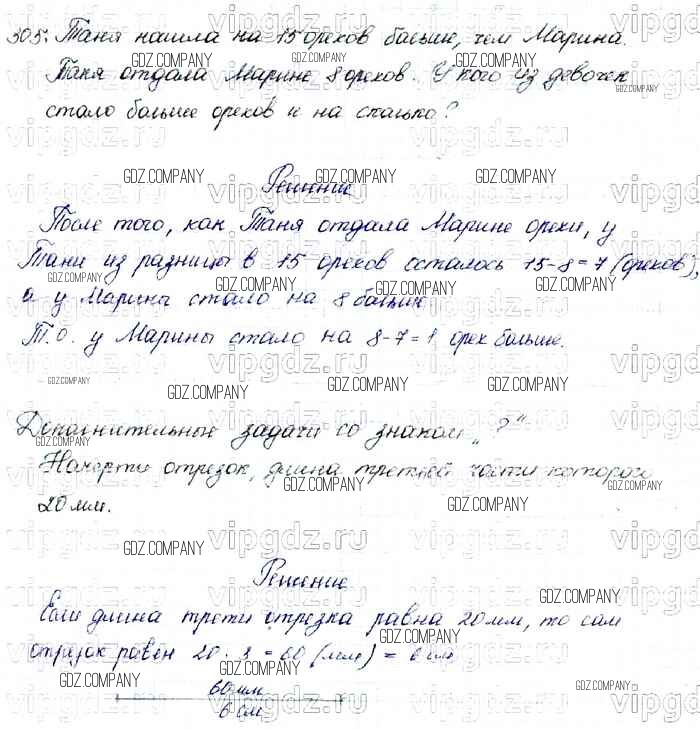 305. Таня нашла на 15 орехов больше, чем Марина.
Таня отдала Марине 8 орехов. У кого из девочек
стало больше орехов и на сколько?
Решение
После того, как Таня отдала Марине орехи, у
Тани из разницы в 15 орехов осталось 15-8=7 (орехов),
а у Марины стало на 8 больше.
Т.о. у Марины стало на 8-7=1 орех больше.
Дополнительные задачи со знаком „?“
Начерти отрезок, длина третьей части которого
20 мм.
Решение
Если длина трети отрезка равна 20 мм, то сам
отрезок равен 20 · 3 = 60 (мм) = 6 см
60 мм
6 см
GDZ.COMPANY
vipgdz.ru